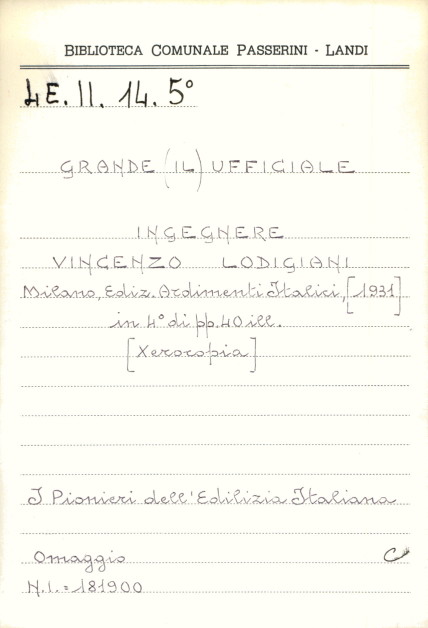 BIBLIOTECA COMUNALE PASSERINI - LANDI
4E. II. 14. 5°
GRANDE (IL) UFFICIALE
INGEGNERE
VINCENZO LODIGIANI
Milano, Ediz. Ardimenti Italici, [1931]
in 4° di pp. 40 ill.
[Xerocopia]
I Pionieri dell'Edilizia Italiana
Omaggio
N.I. = 181900